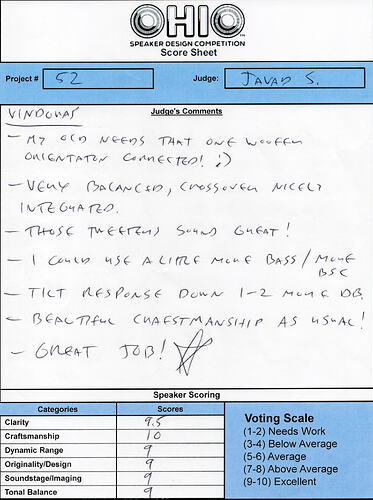 OHIO
SPEAKER DESIGN COMPETITION
Score Sheet
Project # 52 Judge: JAVAD S.
Judge's Comments
VINDOUAS
- MY OCD NEEDS THAT ONE WOOFER
ORIENTATION CORRECTED! ;)
- VERY BALANCED, CROSSOVER NICELY
INTEGRATED.
- THOSE TWEETERS SOUND GREAT!
- I COULD USE A LITTLE MORE BASS / MORE
BSC
- TILT RESPONSE DOWN 1-2 MORE DB.
- BEAUTIFUL CRAFTSMANSHIP AS USUAL!
- GREAT JOB!
Speaker Scoring
Categories Scores
Clarity 9.5
Craftsmanship 10
Dynamic Range 9
Originality/Design 9
Soundstage/Imaging 9
Tonal Balance 9
Voting Scale
(1-2) Needs Work
(3-4) Below Average
(5-6) Average
(7-8) Above Average
(9-10) Excellent